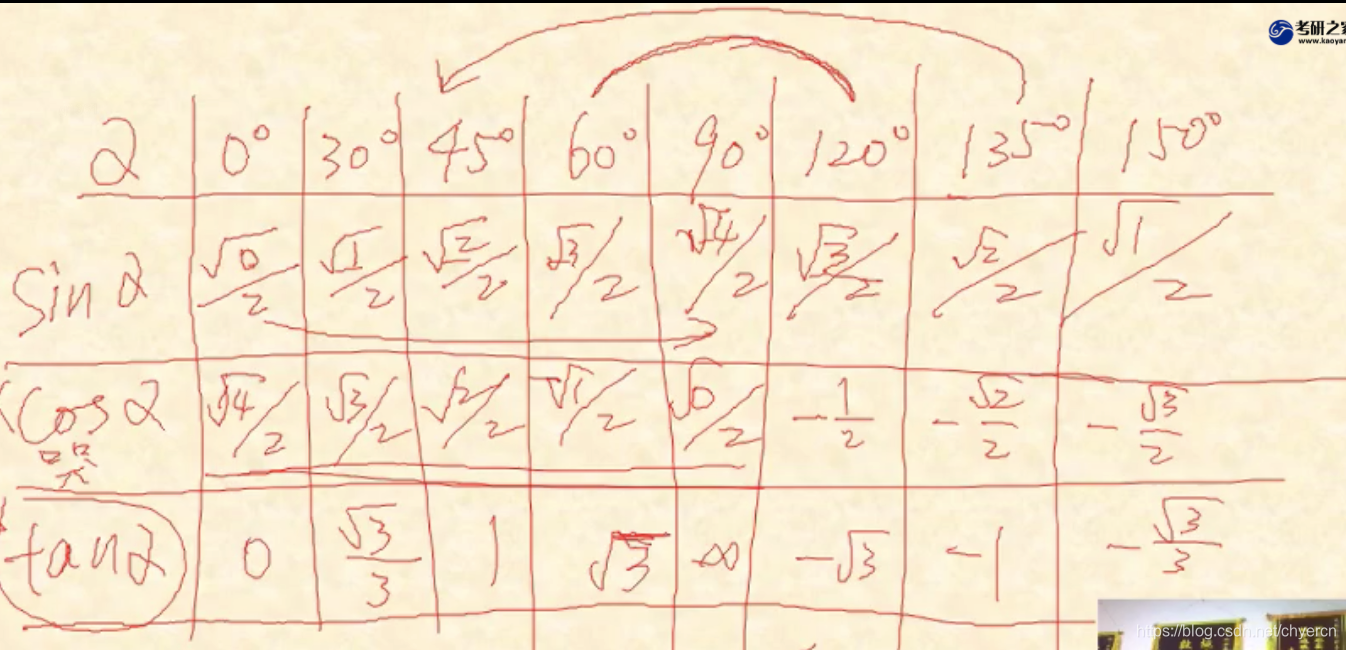 考研之家
www.kaoyan
α 0° 30° 45° 60° 90° 120° 135° 150°
sin α √0/2 √1/2 √2/2 √3/2 √4/2 √3/2 √2/2 √1/2
cos α √4/2 √3/2 √2/2 √1/2 √0/2 -1/2 -√2/2 -√3/2
哭
tan α 0 √3/3 1 √3 ∞ -√3 -1 -√3/3
https://blog.csdn.net/chyercn